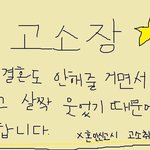 고소장
결혼도 안해줄 거면서
고 살짝 웃었기 때문에
합니다.